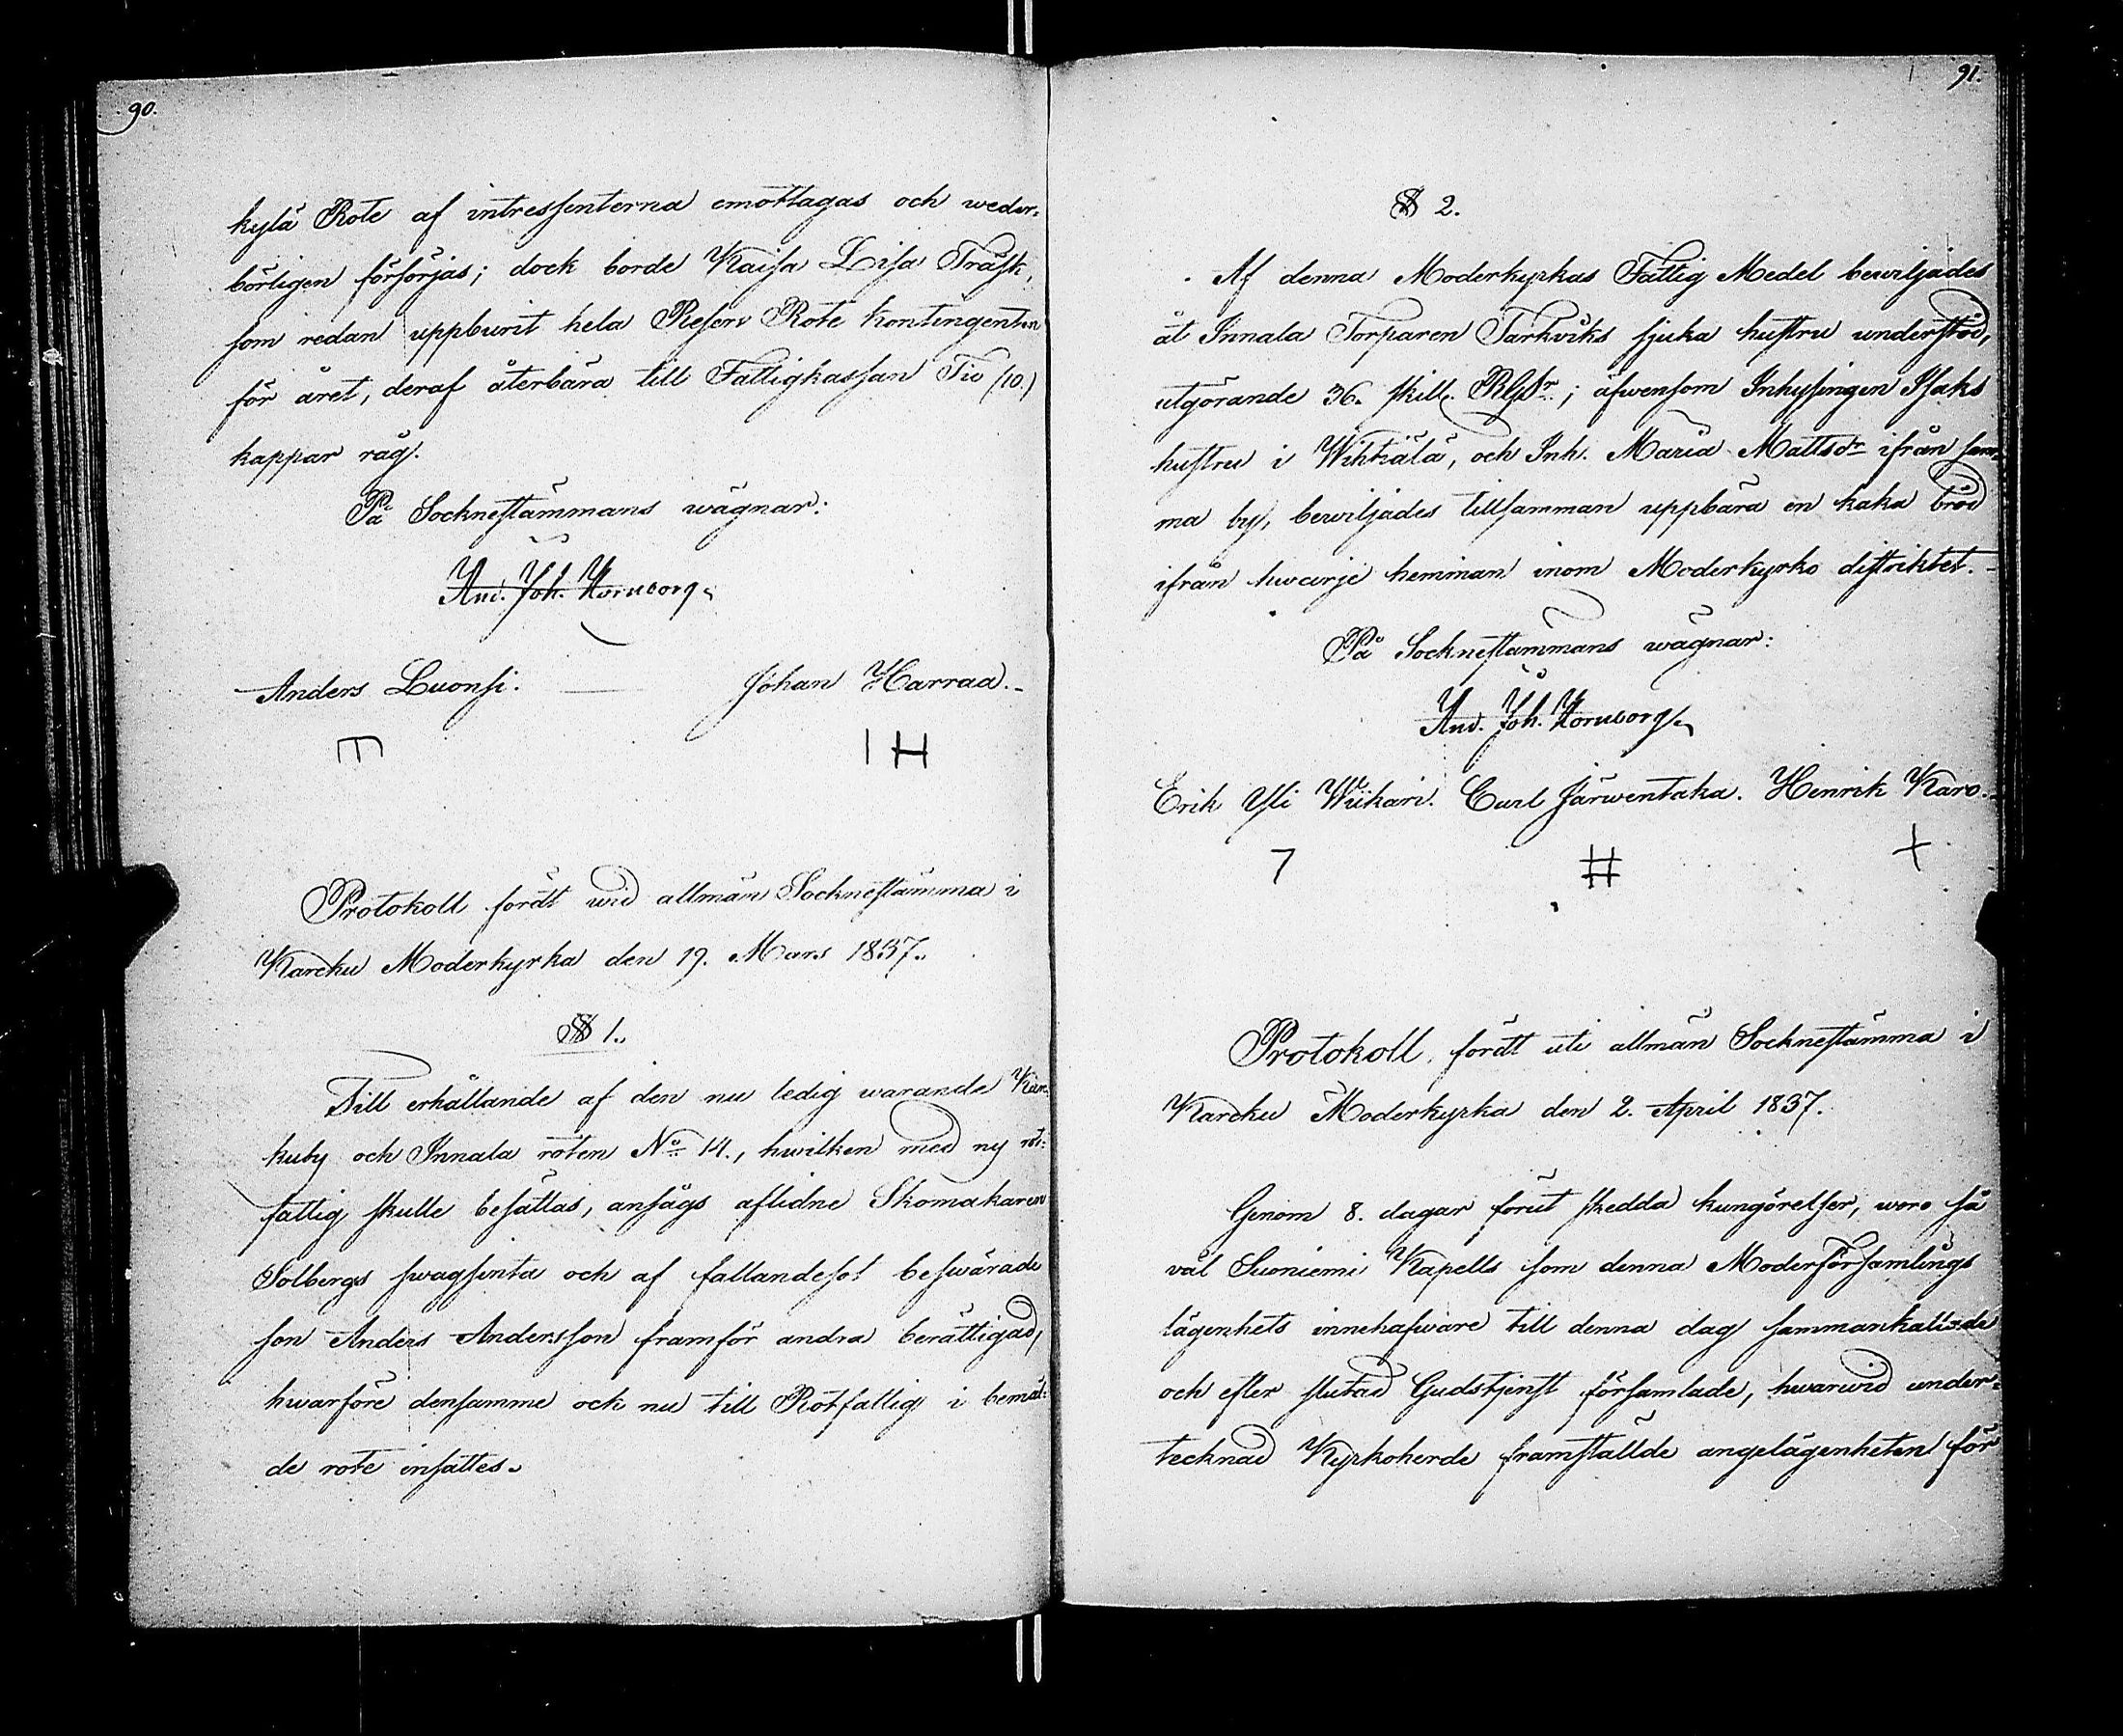 90.
kylä Rote af intressenterna emottagas och weder-
börligen försörjas; dock borde Kaisa Lisa Träsk,
som redan uppburit hela Reserv Rote kontingenten
för året, deraf återbära till Fattigkassan Tio (10.)
kappar råg.
På Sockneståmmans wägnar:
And. Joh. Hornborg.
Anders Luonsi. Johan Harraa.
Protokoll fördt wid allmän Sockneståmma i
Karcku Moderkyrka den 19. Mars 1837.
§ 1.
Till erhållande af den nu ledig warande Kär-
kuby och Innala roten No 14., hwilken med ny rot-
fattig skulle besättas, ansågs aflidne Skomakaren
Solbergs swagsinta och af fallandesot beswärade
son Anders Andersson framför andra berättigad,
hwarföre densamme ock nu till Rotfattig i bemäl-
de rote insattes.
91.
§ 2.
Af denna Moderkyrkas Fattig Medel bewiljades
åt Innala Torparen Tarkviks sjuka hustru understöd,
utgörande 36. skill. ; äfwensom Inhysingen Isaks
hustru i Wihtiälä, och Inh. Maria Mattsdr ifrån sam-
ma by, bewiljades tillsamman uppbära en kaka bröd
ifrån hwarje hemman inom Moderkyrko distriktet.
På Sockneståmmans wägnar:
And. Joh. Hornborg.
Erik Yli Wiikari. Carl Järwentaka. Henrik Karo.
Protokoll, fördt uti allmän Sockneståmma i
Karcku Moderkyrka den 2. April 1837.
Genom 8. dagar förut skedda kungörelser, woro så
väl Suoniemi Kapells som denna Moderförsamlings
lägenhets innehafware till denna dag sammankallade
och efter slutad Gudstjenst församlade, hwarwid under-
tecknad Kyrkoherde framställde angelägenheten för